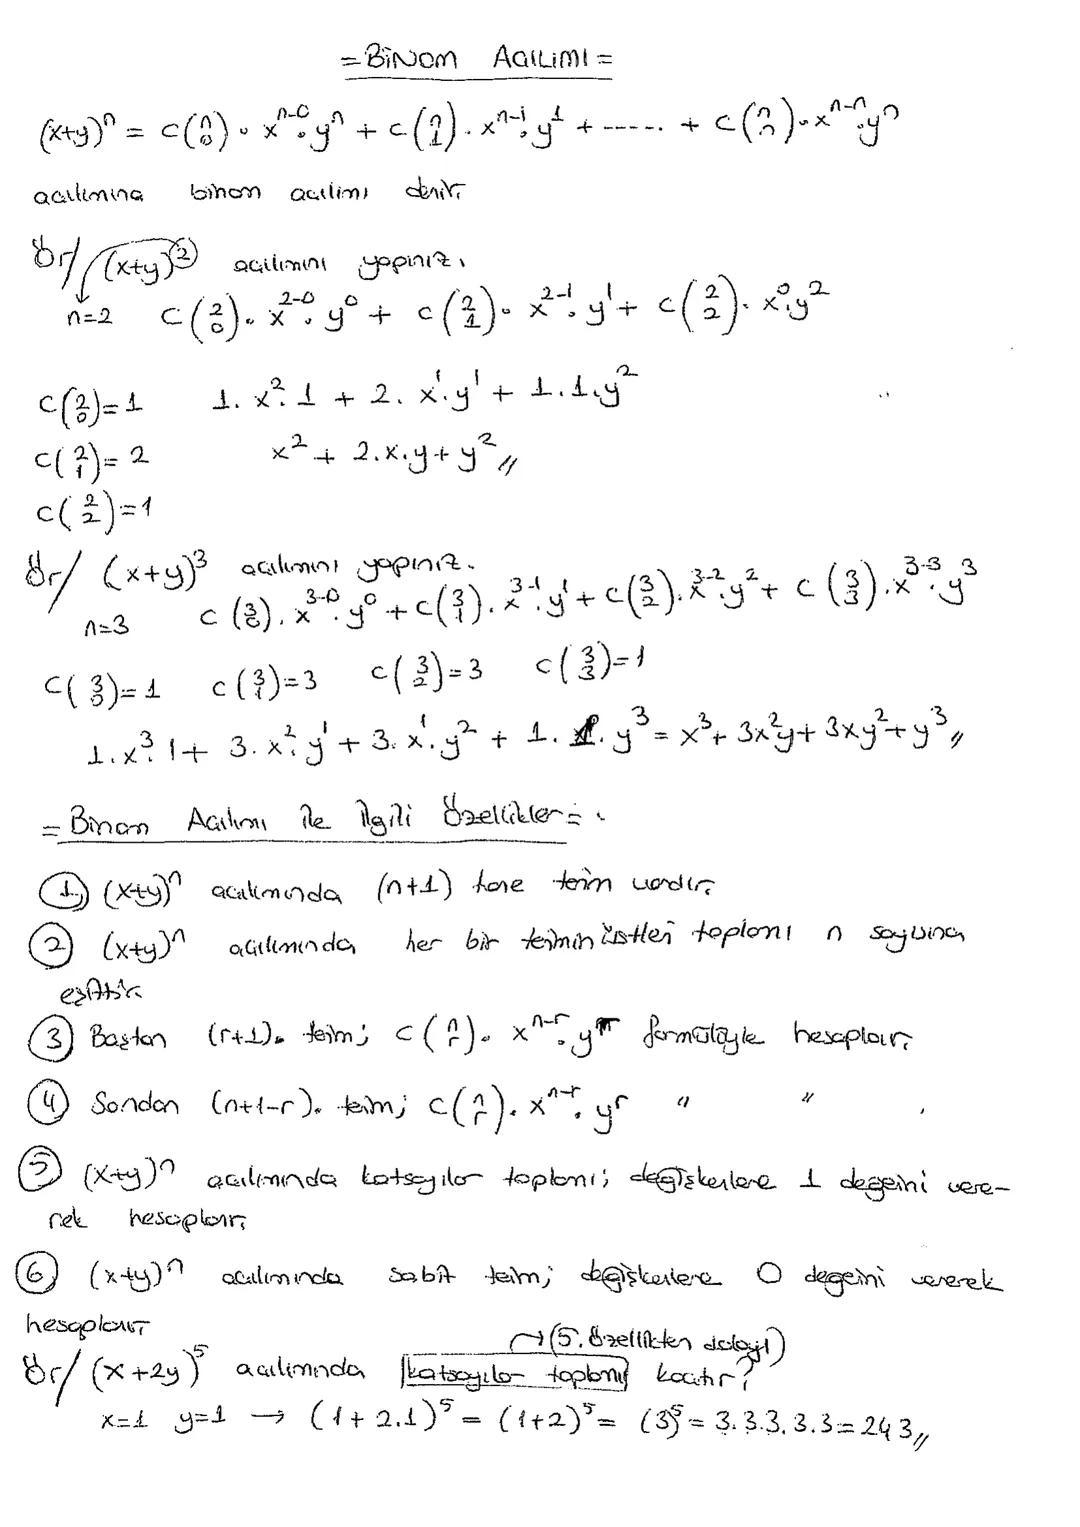 = BiNOM AÇILIMI =
(x+y)ⁿ = C(n 0) . xⁿ⁻⁰ . yⁿ + C(n 1) . xⁿ⁻¹ . y¹ + ...... + C(n n) . xⁿ⁻ⁿ . yⁿ
açılımına binom açılımı denir.
Ör/ (x+y)² açılımını yapınız.
n=2 C(2 0) . x²⁻⁰ . y⁰ + C(2 1) . x²⁻¹ . y¹ + C(2 2) . x⁰ . y²
C(2 0) = 1 1. x² . 1 + 2. x¹ . y¹ + 1.1.y²
C(2 1) = 2 x² + 2.x.y + y² //
C(2 2) = 1
Ör/ (x+y)³ açılımını yapınız.
n=3 C(3 0) . x³⁻⁰ . y⁰ + C(3 1) . x³⁻¹ . y¹ + C(3 2) . x³⁻² . y² + C(3 3) . x³⁻³ . y³
C(3 0) = 1 C(3 1) = 3 C(3 2) = 3 C(3 3) = 1
1. x³ . 1 + 3. x² . y¹ + 3. x¹ . y² + 1. 1. y³ = x³ + 3x²y + 3xy² + y³ //
= Binom Açılımı ile ilgili Özellikler =
1) (x+y)ⁿ açılımında (n+1) tane terim vardır.
2) (x+y)ⁿ açılımında her bir terimin üstleri toplamı n sayısına
eşittir.
3) Baştan (r+1). terim; C(n r) . xⁿ⁻ʳ . yʳ formülüyle hesaplanır.
4) Sondan (n+1-r). terim; C(n r) . xⁿ⁻ʳ . yʳ " "
5) (x+y)ⁿ açılımında katsayılar toplamı; değişkenlere 1 değerini vere-
rek hesaplanır.
6) (x+y)ⁿ açılımında sabit terim; değişkenlere 0 değerini vererek
hesaplanır.
→ (5. özellikten dolayı)
Ör/ (x+2y)⁵ açılımında katsayılar toplamı kaçtır?
x=1 y=1 → (1+2.1)⁵ = (1+2)⁵ = (3)⁵ = 3.3.3.3.3 = 243 //